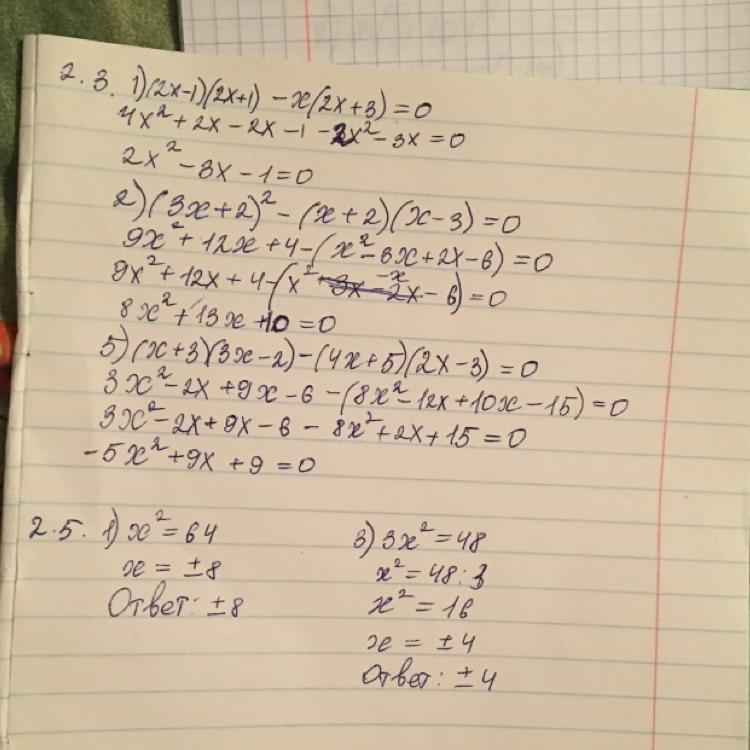 2.3. 1)(2x-1)(2x+1) - x(2x+3) = 0
4x² + 2x - 2x - 1 - 2x² - 3x = 0
2x² - 3x - 1 = 0
2) (3x+2)² - (x+2)(x-3) = 0
9x² + 12x + 4 - (x² - 3x + 2x - 6) = 0
9x² + 12x + 4 - (x² -x - 6) = 0
8x² + 13x + 10 = 0
5) (x+3)(3x-2) - (4x+5)(2x-3) = 0
3x² - 2x + 9x - 6 - (8x² - 12x + 10x - 15) = 0
3x² - 2x + 9x - 6 - 8x² + 2x + 15 = 0
-5x² + 9x + 9 = 0
2.5. 1) x² = 64
x = ±8
Ответ: ±8
3) 3x² = 48
x² = 48 : 3
x² = 16
x = ±4
Ответ: ±4